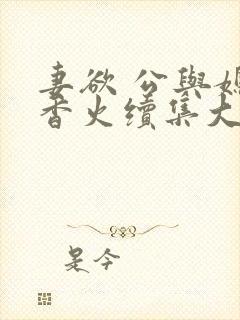 妻欲 公與媳
香火續集大
是今